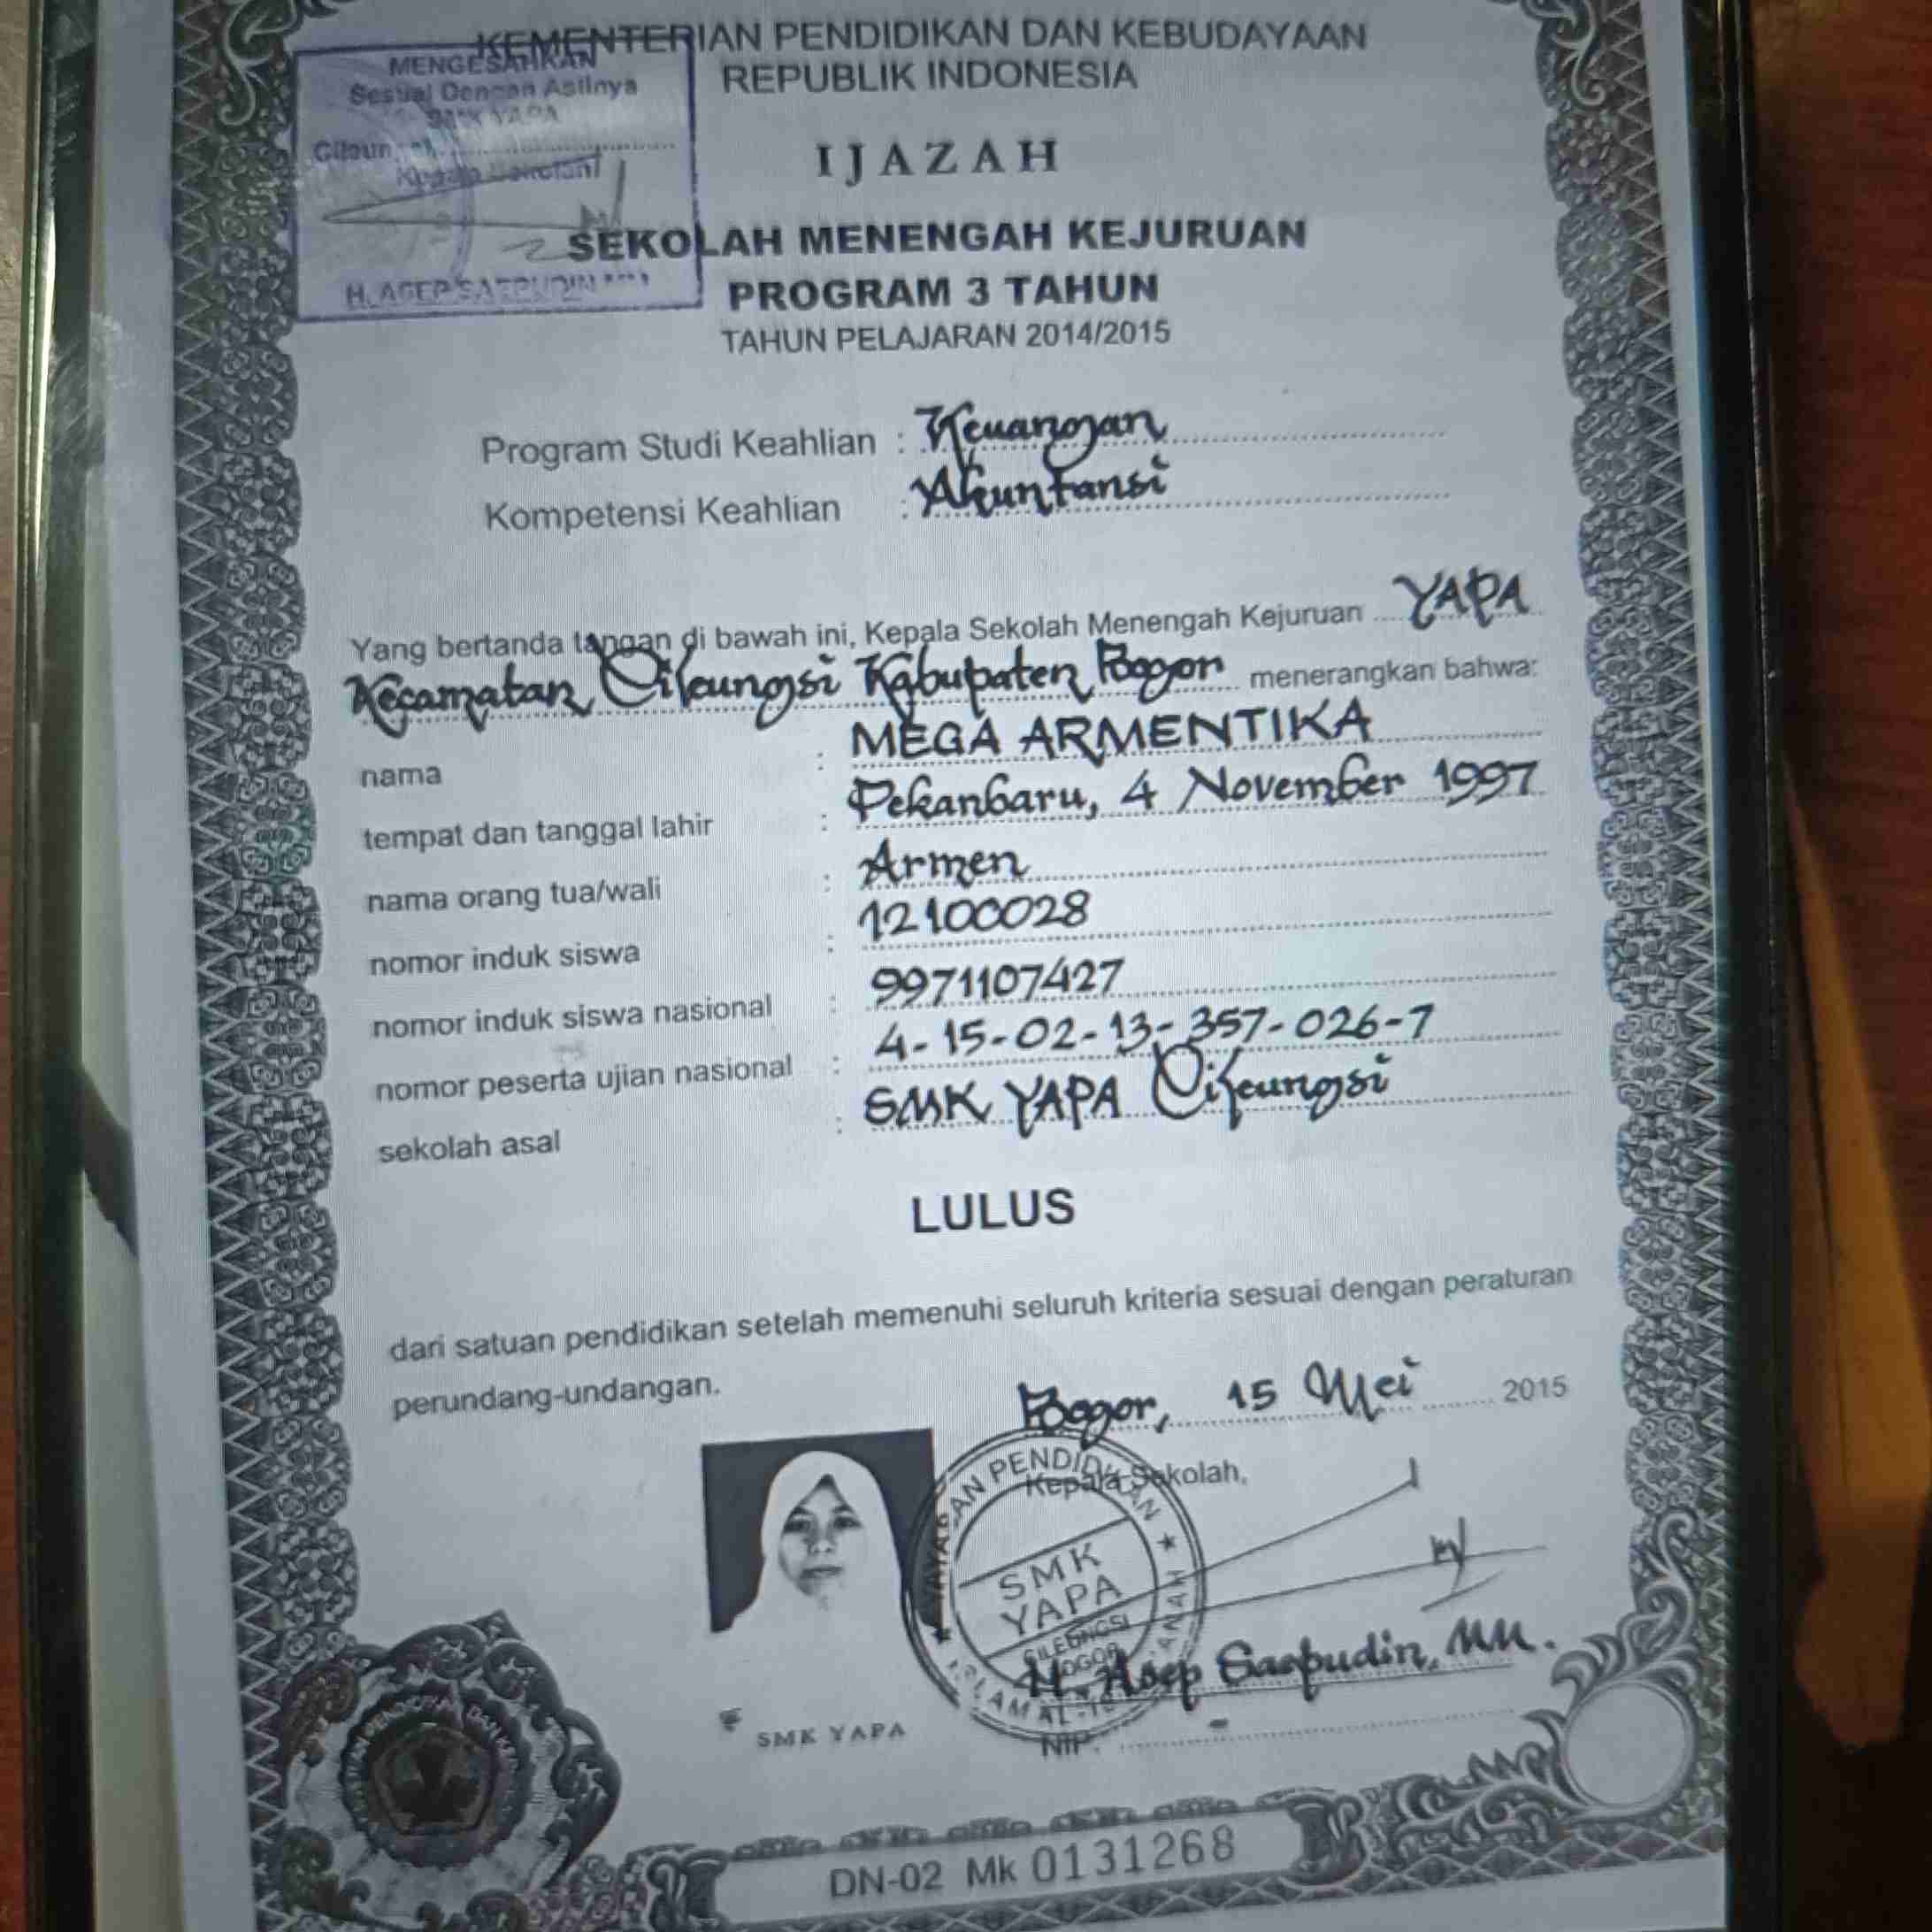 KEMENTERIAN PENDIDIKAN DAN KEBUDAYAAN
REPUBLIK INDONESIA
MENGESAHKAN
Sesuai Dengan Aslinya
SMK YAPA
Kepala Sekolah
IJAZAH
SEKOLAH MENENGAH KEJURUAN
PROGRAM 3 TAHUN
TAHUN PELAJARAN 2014/2015
Program Studi Keahlian : Keuangan
Kompetensi Keahlian : Akuntansi
Yang bertanda tangan di bawah ini, Kepala Sekolah Menengah Kejuruan YAPA
Kecamatan Cileungsi Kabupaten Bogor menerangkan bahwa:
nama : MEGA ARMENTIKA
tempat dan tanggal lahir : Pekanbaru, 4 November 1997
nama orang tua/wali : Armen
nomor induk siswa : 12100028
nomor induk siswa nasional : 9971107427
nomor peserta ujian nasional : 4-15-02-13-357-026-7
sekolah asal : SMK YAPA Cileungsi
LULUS
dari satuan pendidikan setelah memenuhi seluruh kriteria sesuai dengan peraturan
perundang-undangan.
Bogor, 15 Mei 2015
Kepala Sekolah,
SMK
YAPA
CILEUNGSI
BOGOR
H. Asep Saepudin, MM.
NIP. -
SMK YAPA
DN-02 Mk 0131268